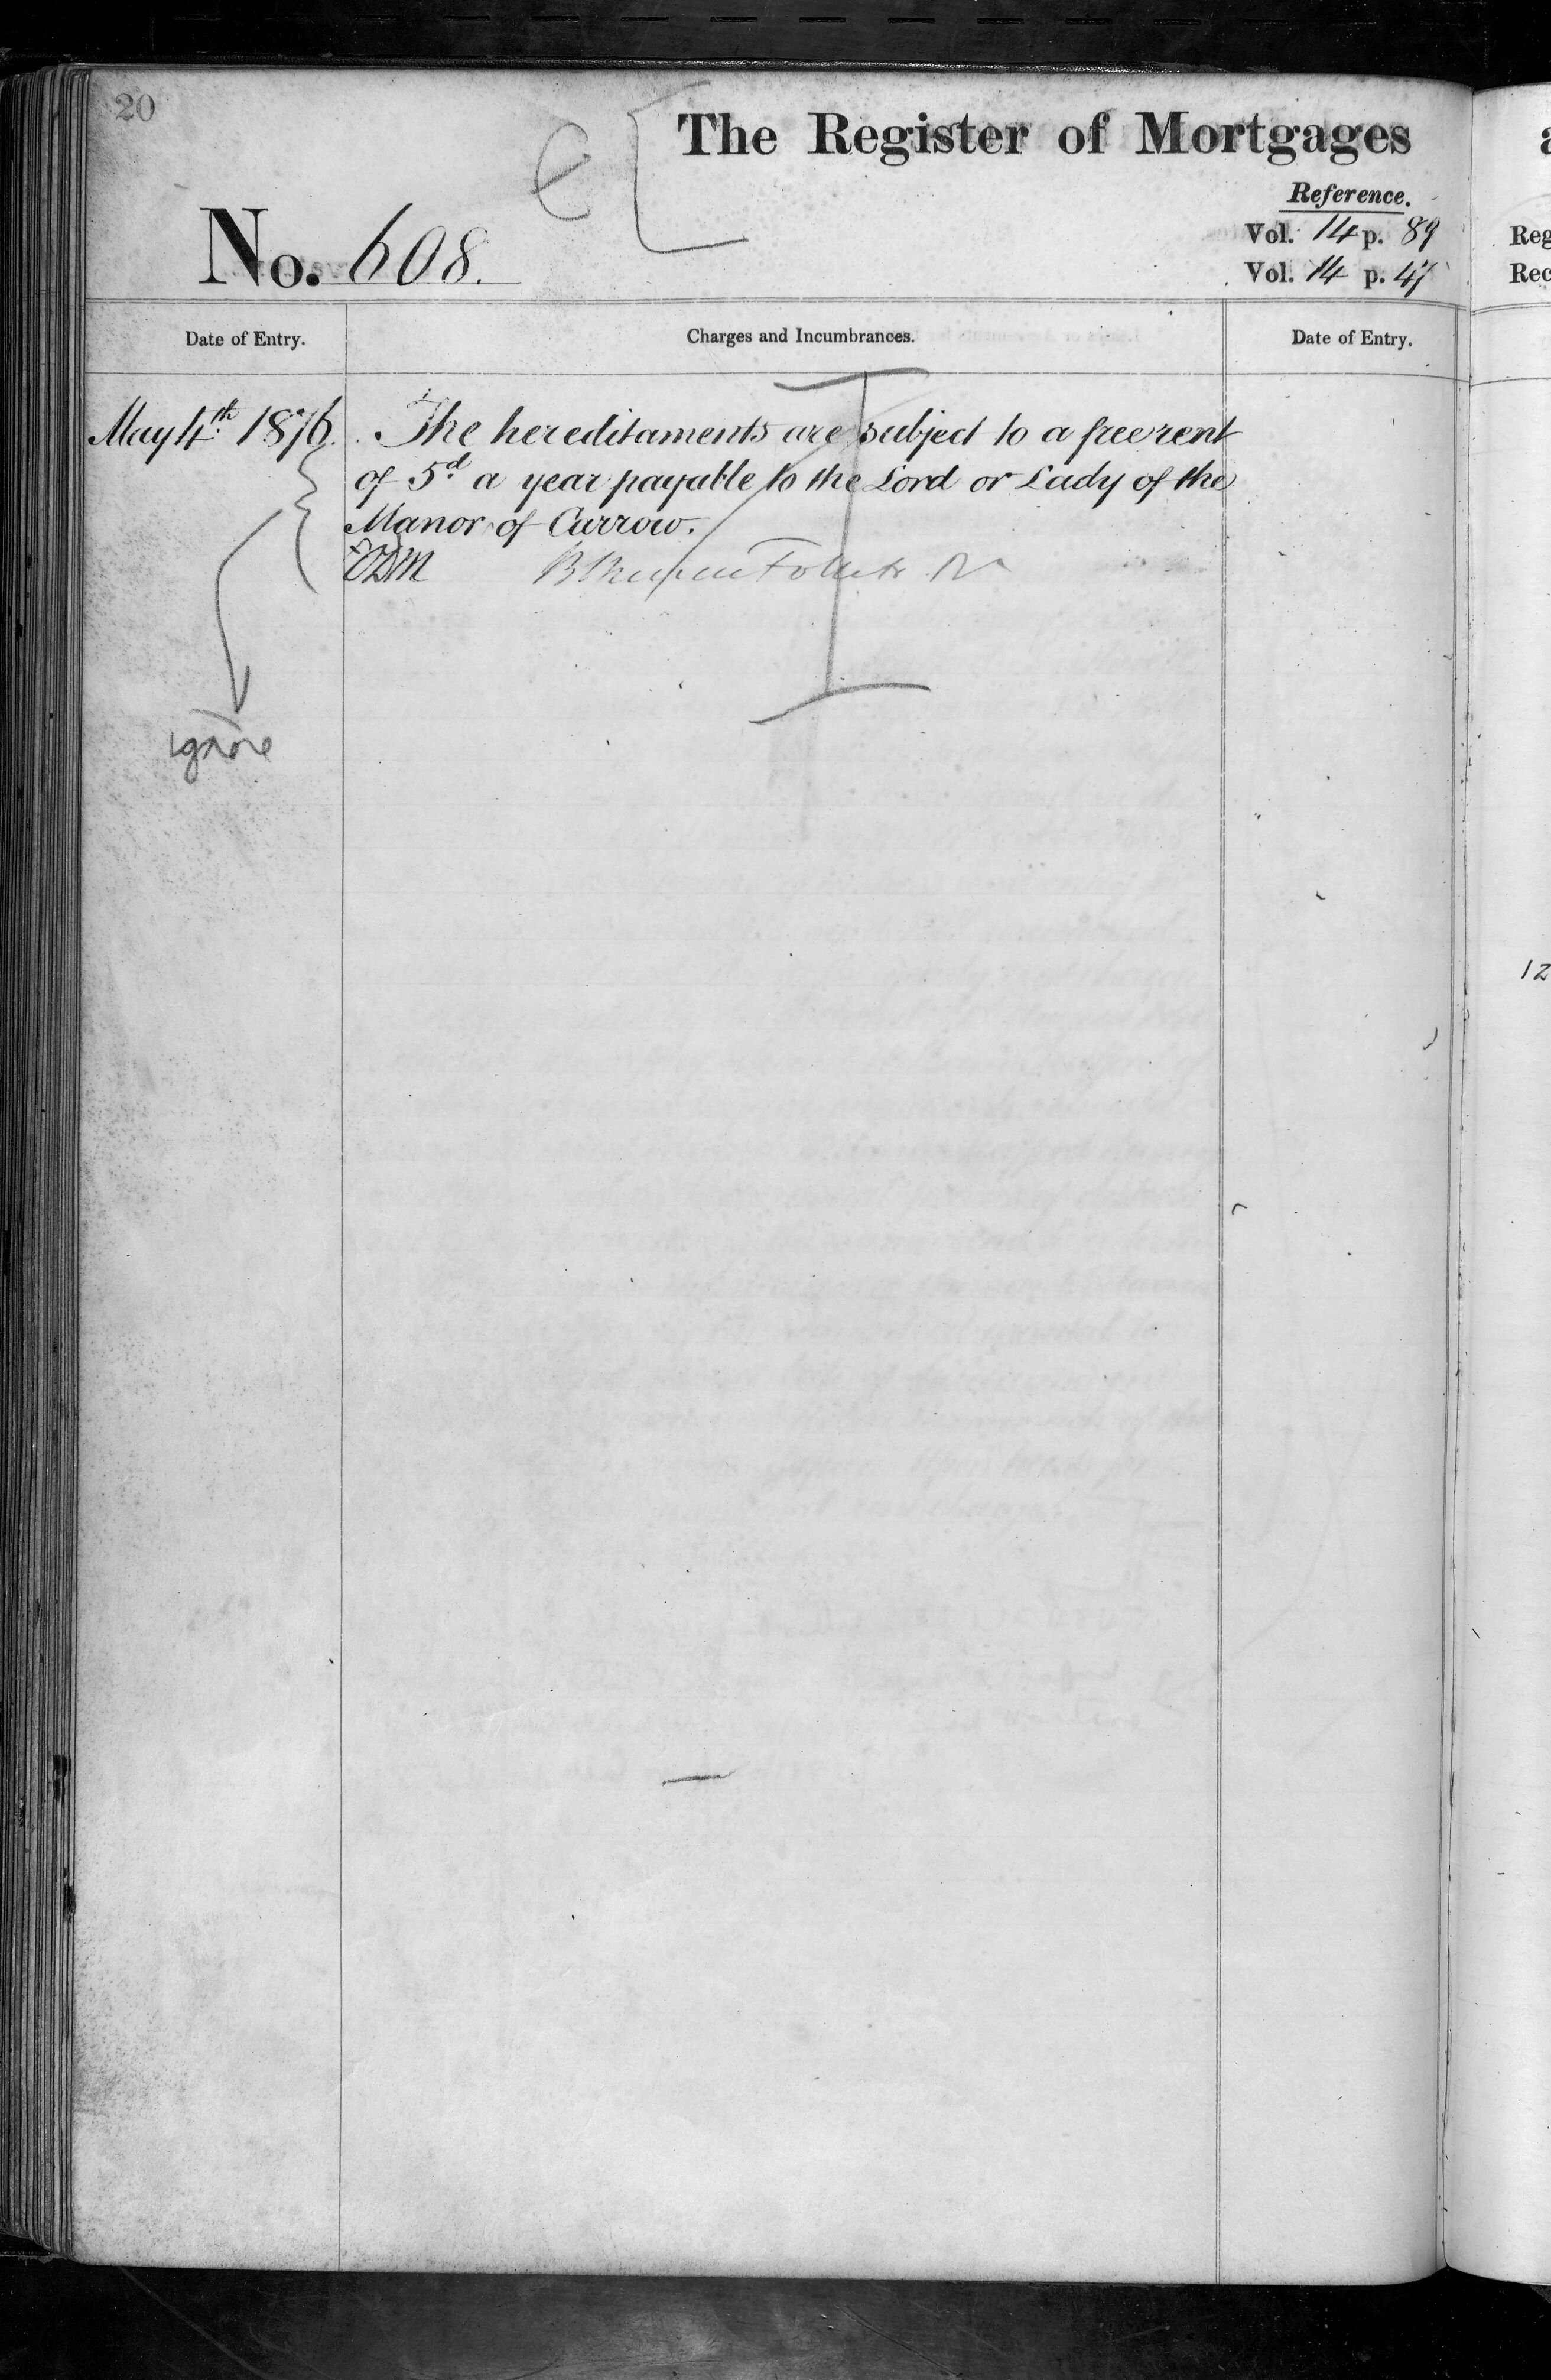 20
The Register of Mortgages
Reference.
No. 608.
Vol. 14 p. 89
Vol. 14 p. 47
Reg
Rec
Date of Entry.
Charges and Incumbrances.
Date of Entry.
May 4th 1876.
The hereditaments are subject to a free rent
of 5d a year payable to the Lord or Lady of the
Manor of Currow.
ignore
12